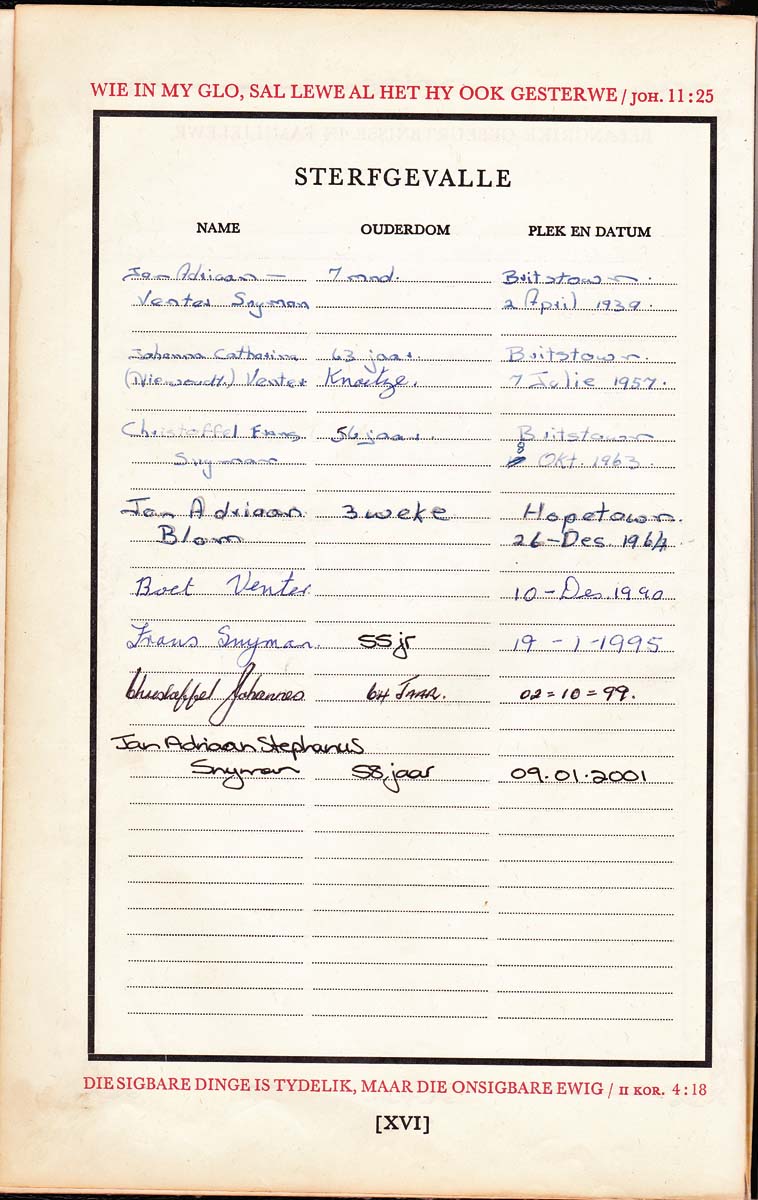 WIE IN MY GLO, SAL LEWE AL HET HY OOK GESTERWE / JOH. 11:25
STERFGEVALLE
NAME OUDERDOM PLEK EN DATUM
Jan Adriaan – 7 mnd. Britstown.
Venter Snyman 2 April 1939.
Johanna Catharina 63 jaar. Britstown.
(Niewoudt) Venter Knoetze. 7 Julie 1957.
Christoffel Frans 56 jaar. Britstown
Snyman 8 Okt. 1963.
Jan Adriaan 3 weke Hopetown.
Blom 26-Des. 1964.
Boet Venter 10-Des. 1990
Frans Snyman. 55 jr 19-1-1995
Christaffel Johannes 64 JAAR. 02=10=99.
Jan Adriaan Stephanus
Snyman 58 jaar 09.01.2001
DIE SIGBARE DINGE IS TYDELIK, MAAR DIE ONSIGBARE EWIG / II KOR. 4:18
[XVI]